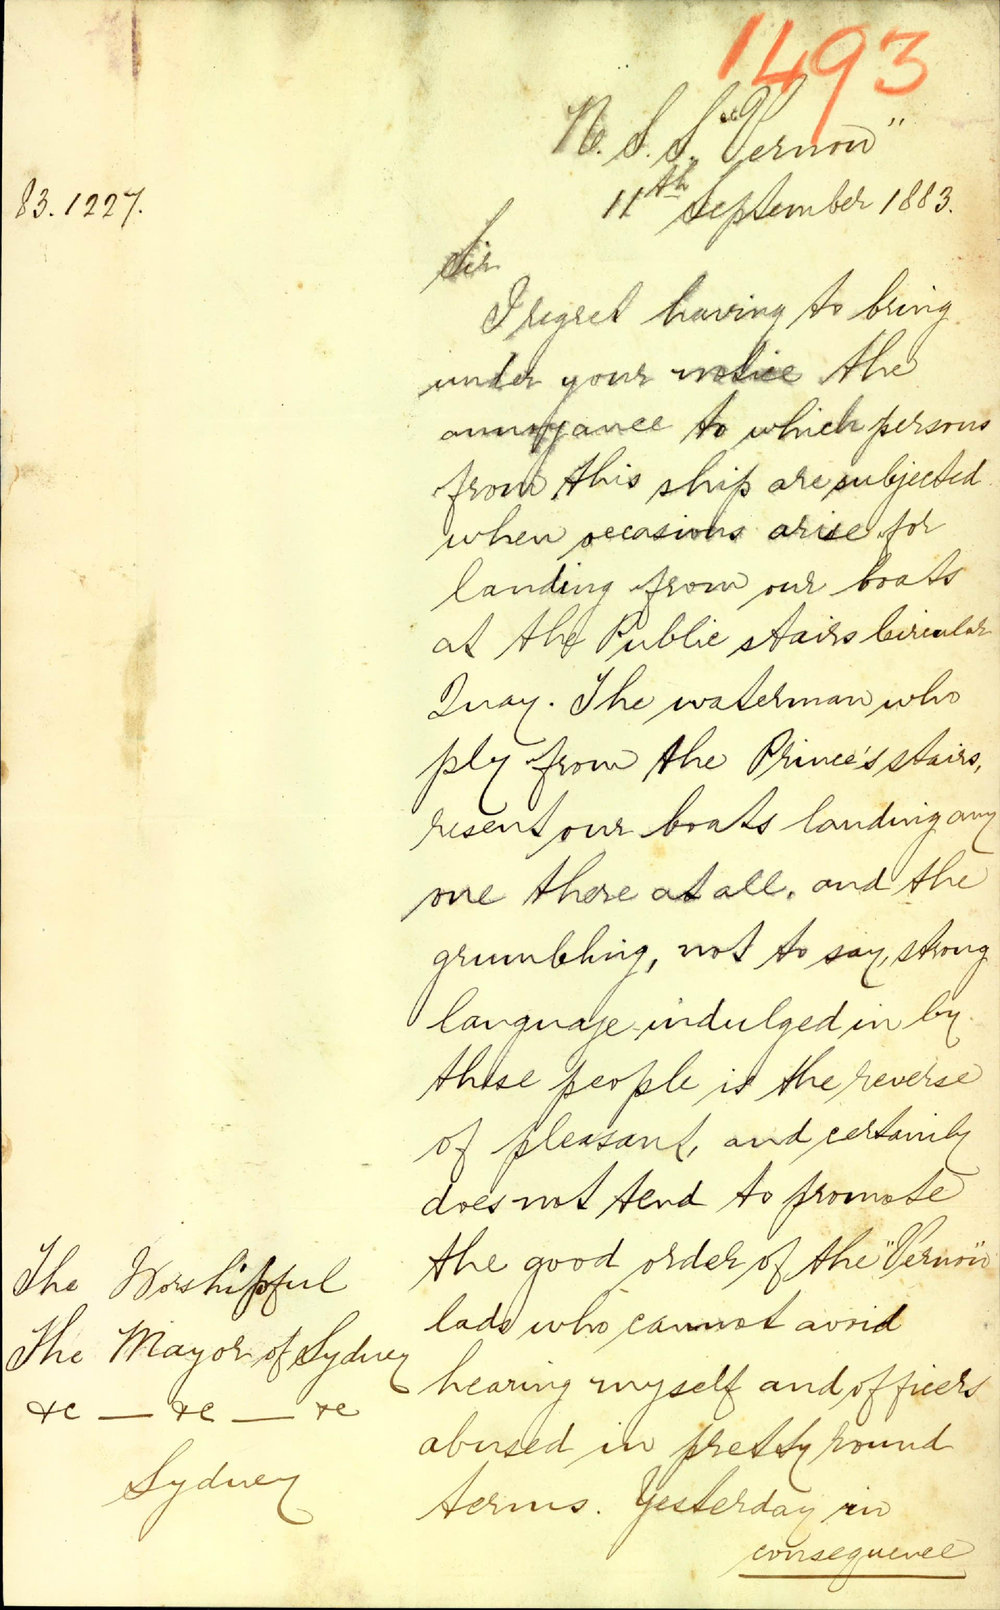 1493
N.S.S. "Vernon"
83.1227.
11th September 1883.
Sir
I regret having to bring
under your notice the
annoyance to which persons
from this ship are subjected
when occasions arise for
landing from our boats
at the Public stairs Circular
Quay. The waterman who
ply from the Prince's stairs,
resent our boats landing any
one there at all, and the
grumbling, not to say, strong
language indulged in by
these people is the reverse
of pleasant, and certainly
does not tend to promote
the good order of the "Vernon"
lads who cannot avoid
hearing myself and officers
abused in pretty round
terms. Yesterday in
consequence
The Worshipful
The Mayor of Sydney
&c — &c — &c
Sydney